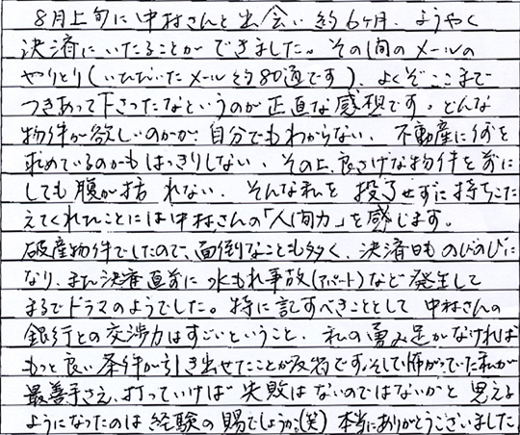 8月上旬に中村さんと出会い約6ヶ月、ようやく
決済にいたることができました。その間のメールの
やりとり(いただいたメール約80通です)、よくぞここまで
つきあって下さったなというのが正直な感想です。どんな
物件が欲しいのかが自分でもわからない、不動産に何を
求めているのかもはっきりしない、その上、良さげな物件を前に
しても腹が括れない、そんな私を投了せずに持ちこた
えてくれたことには中村さんの「人間力」を感じます。
破産物件でしたので、面倒なことも多く、決済日ものびのびに
なり、また決済直前に水もれ事故(アパート)など発生して
まるでドラマのようでした。特に記すべきこととして中村さんの
銀行との交渉力はすごいということ、私の勇み足がなければ
もっと良い条件が引き出せたことが反省です。そして怖がっていた私が
最善手さえ、打っていけば失敗はないのではないかと思える
ようになったのは経験の賜でしょうか。(笑) 本当にありがとうございました